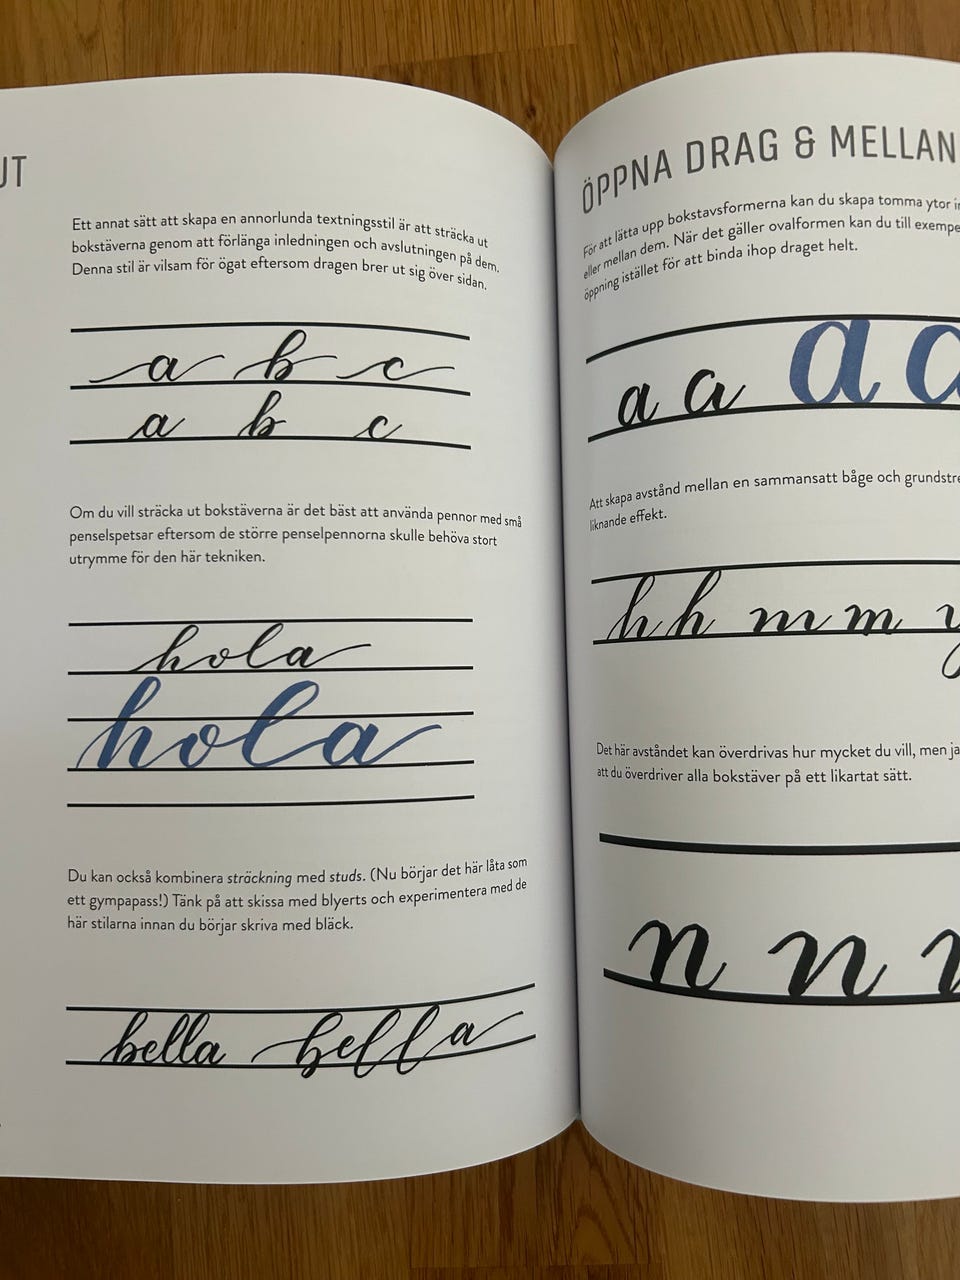 UT
Ett annat sätt att skapa en annorlunda textningsstil är att sträcka ut
bokstäverna genom att förlänga inledningen och avslutningen på dem.
Denna stil är vilsam för ögat eftersom dragen brer ut sig över sidan.
a b c
a b c
Om du vill sträcka ut bokstäverna är det bäst att använda pennor med små
penselspetsar eftersom de större penselpennorna skulle behöva stort
utrymme för den här tekniken.
hola
hola
Du kan också kombinera sträckning med studs. (Nu börjar det här låta som
ett gympapass!) Tänk på att skissa med blyerts och experimentera med de
här stilarna innan du börjar skriva med bläck.
bella bella
ÖPPNA DRAG & MELLAN
För att lätta upp bokstavsformerna kan du skapa tomma ytor
eller mellan dem. När det gäller ovalformen kan du till
öppning istället för att binda ihop draget helt.
a a a a
Att skapa avstånd mellan en sammansatt båge och
liknande effekt.
h h m m y
Det här avståndet kan överdrivas hur mycket du vill, men
att du överdriver alla bokstäver på ett likartat sätt.
n n